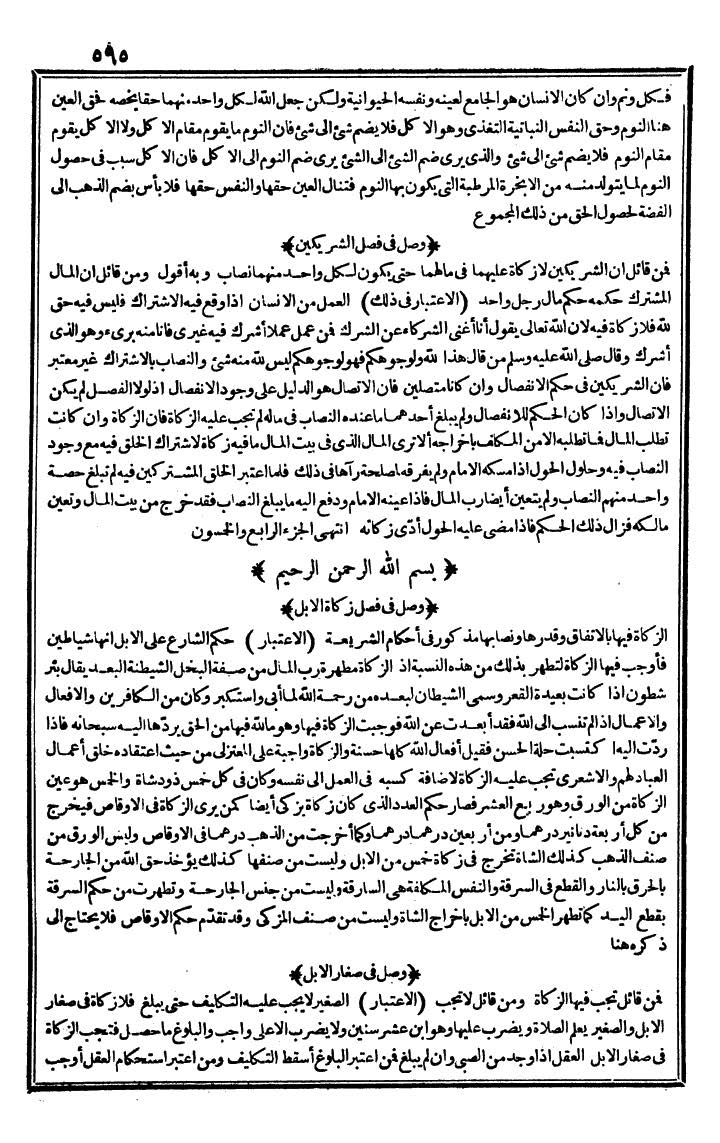 ٥٩٥
فكل ونم وان كان الانسان هو الجامع لعينه ونفسه الحيوانية ولكن جعل الله لكل واحد منهما حقا يخصه فحق العين
هنا النوم وحق النفس النباتية التغذى وهو الاكل فلا يضم شئ الى شئ فان النوم ما يقوم مقام الاكل ولا الاكل يقوم
مقام النوم فلا يضم شئ الى شئ والذى يرى ضم الشئ الى الشئ يرى ضم النوم الى الاكل فان الاكل سبب فى حصول
النوم لما يتولد منه من الابخرة المرطبة التى يكون بها النوم فتنال العين حقها والنفس حقها فلا بأس بضم الذهب الى
الفضة لحصول الحق من ذلك المجموع
﴿وصل فى فصل الشريكين﴾
فمن قائل ان الشريكين لا زكاة عليهما فى مالهما حتى يكون لكل واحد منهما نصاب وبه أقول ومن قائل ان المال
المشترك حكمه حكم مال رجل واحد (الاعتبار فى ذلك) العمل من الانسان اذا وقع فيه الاشتراك فليس فيه حق
لله فلا زكاة فيه لان الله تعالى يقول أنا أغنى الشركاء عن الشرك فمن عمل عملا أشرك فيه غيرى فانا منه برىء وهو الذى
أشرك وقال صلى الله عليه وسلم من قال هذا لله ولوجوهكم فهو لوجوهكم ليس لله منه شئ والنصاب بالاشتراك غير معتبر
فان الشريكين فى حكم الانفصال وان كانا متصلين فان الاتصال هو الدليل على وجود الانفصال اذ لولا الفصل لم يكن
الاتصال واذا كان الحكم للانفصال ولم يبلغ أحدهما ما عنده النصاب فى ماله لم تجب عليه الزكاة فان الزكاة وان كانت
تطلب المال فما تطلبه الا من المكلف باخراجه ألا ترى المال الذى فى بيت المال ما فيه زكاة لاشتراك الخلق فيه مع وجود
النصاب فيه وحلول الحول اذا مسكه الامام ولم يفرقه لمصلحة رآها فى ذلك فلما اعتبر الخلق المشتركين فيه لم تبلغ حصة
واحد منهم النصاب ولم يتعين أيضا رب المال فاذا عينه الامام ودفع اليه ما يبلغ النصاب فقد خرج من بيت المال وتعين
مالكه فزال ذلك الحكم فاذا مضى عليه الحول أدّى زكاته انتهى الجزء الرابع والخمسون
﴿ بسم الله الرحمن الرحيم ﴾
﴿وصل فى فصل زكاة الابل﴾
الزكاة فيها بالاتفاق وقدرها ونصابها مذكور فى أحكام الشريعة (الاعتبار) حكم الشارع على الابل انها شياطين
فأوجب فيها الزكاة لتطهر بذلك من هذه النسبة اذ الزكاة مطهرة رب المال من صفة البخل الشيطنة البعد يقال بئر
شطون اذا كانت بعيدة القعر وسمى الشيطان لبعده من رحمة الله لما أبى واستكبر وكان من الكافرين والافعال
والاعمال اذا لم تنسب الى الله فقد أبعدت عن الله فوجبت الزكاة فيها وهو ما لله فيها من الحق يردّها اليه سبحانه فاذا
ردّت اليه اكتسبت حلة الحسن فقيل أفعال الله كلها حسنة والزكاة واجبة على المعتزلى من حيث اعتقاده خلق أعمال
العباد لهم والاشعرى تجب عليه الزكاة لاضافة كسبه فى العمل الى نفسه وكان فى كل خمس ذود شاة والخمس هو عين
الزكاة من الورق وهو ربع العشر فصار حكم العدد الذى كان زكاة يزكى أيضا كمن يرى الزكاة فى الاوقاص فيخرج
من كل أربعة دنانير درهما ومن أربعين درهما درهما وكما أخرجت من الذهب درهما فى الاوقاص وليس الورق من
صنف الذهب كذلك الشاة تخرج فى زكاة خمس من الابل وليست من صنفها كذلك يؤخذ حق الله من الجارحة
بالحرق بالنار والقطع فى السرقة والنفس المكلفة هى السارقة وليست من جنس الجارحة وتطهرت من حكم السرقة
بقطع اليد كما تطهر الخمس من الابل باخراج الشاة وليست من صنف المزكى وقد تقدّم حكم الاوقاص فلا يحتاج الى
ذكره هنا
﴿وصل فى صغار الابل﴾
فمن قائل تجب فيها الزكاة ومن قائل لا تجب (الاعتبار) الصغير لا يجب عليه التكليف حتى يبلغ فلا زكاة فى صغار
الابل والصغير يعلم الصلاة ويضرب عليها وهو ابن عشر سنين ولا يضرب الا على واجب والبلوغ ما حصل فتجب الزكاة
فى صغار الابل العقل اذا وجد من الصبى وان لم يبلغ فمن اعتبر البلوغ أسقط التكليف ومن اعتبر استحكام العقل أوجب